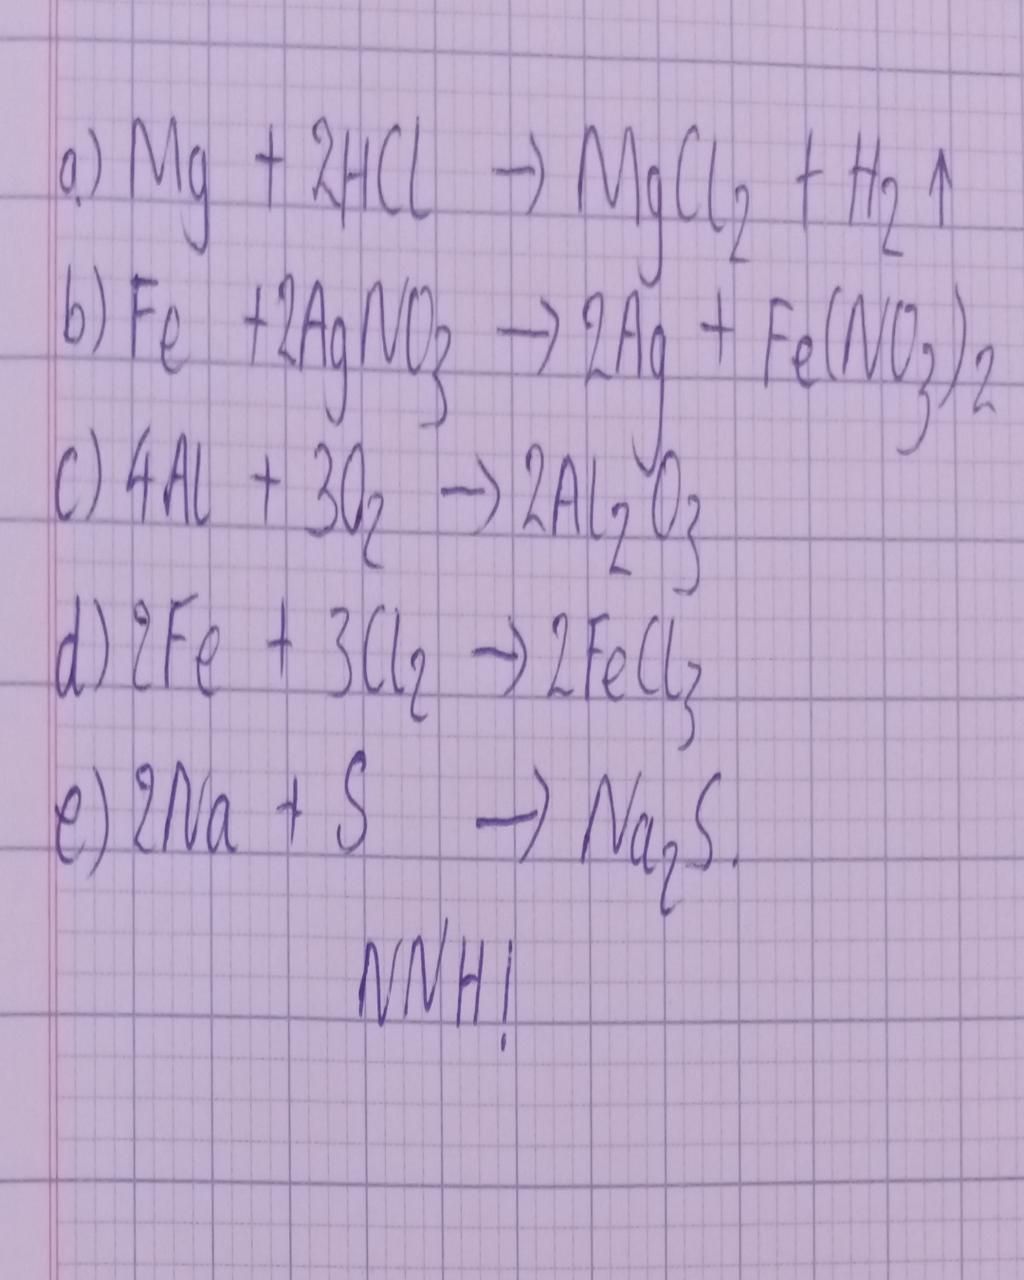 a) Mg + 2HCl → MgCl₂ + H₂ ↑
b) Fe + 2AgNO₃ → 2Ag + Fe(NO₃)₂
c) 4Al + 3O₂ → 2Al₂O₃
d) 2Fe + 3Cl₂ → 2FeCl₃
e) 2Na + S → Na₂S.
NNH!